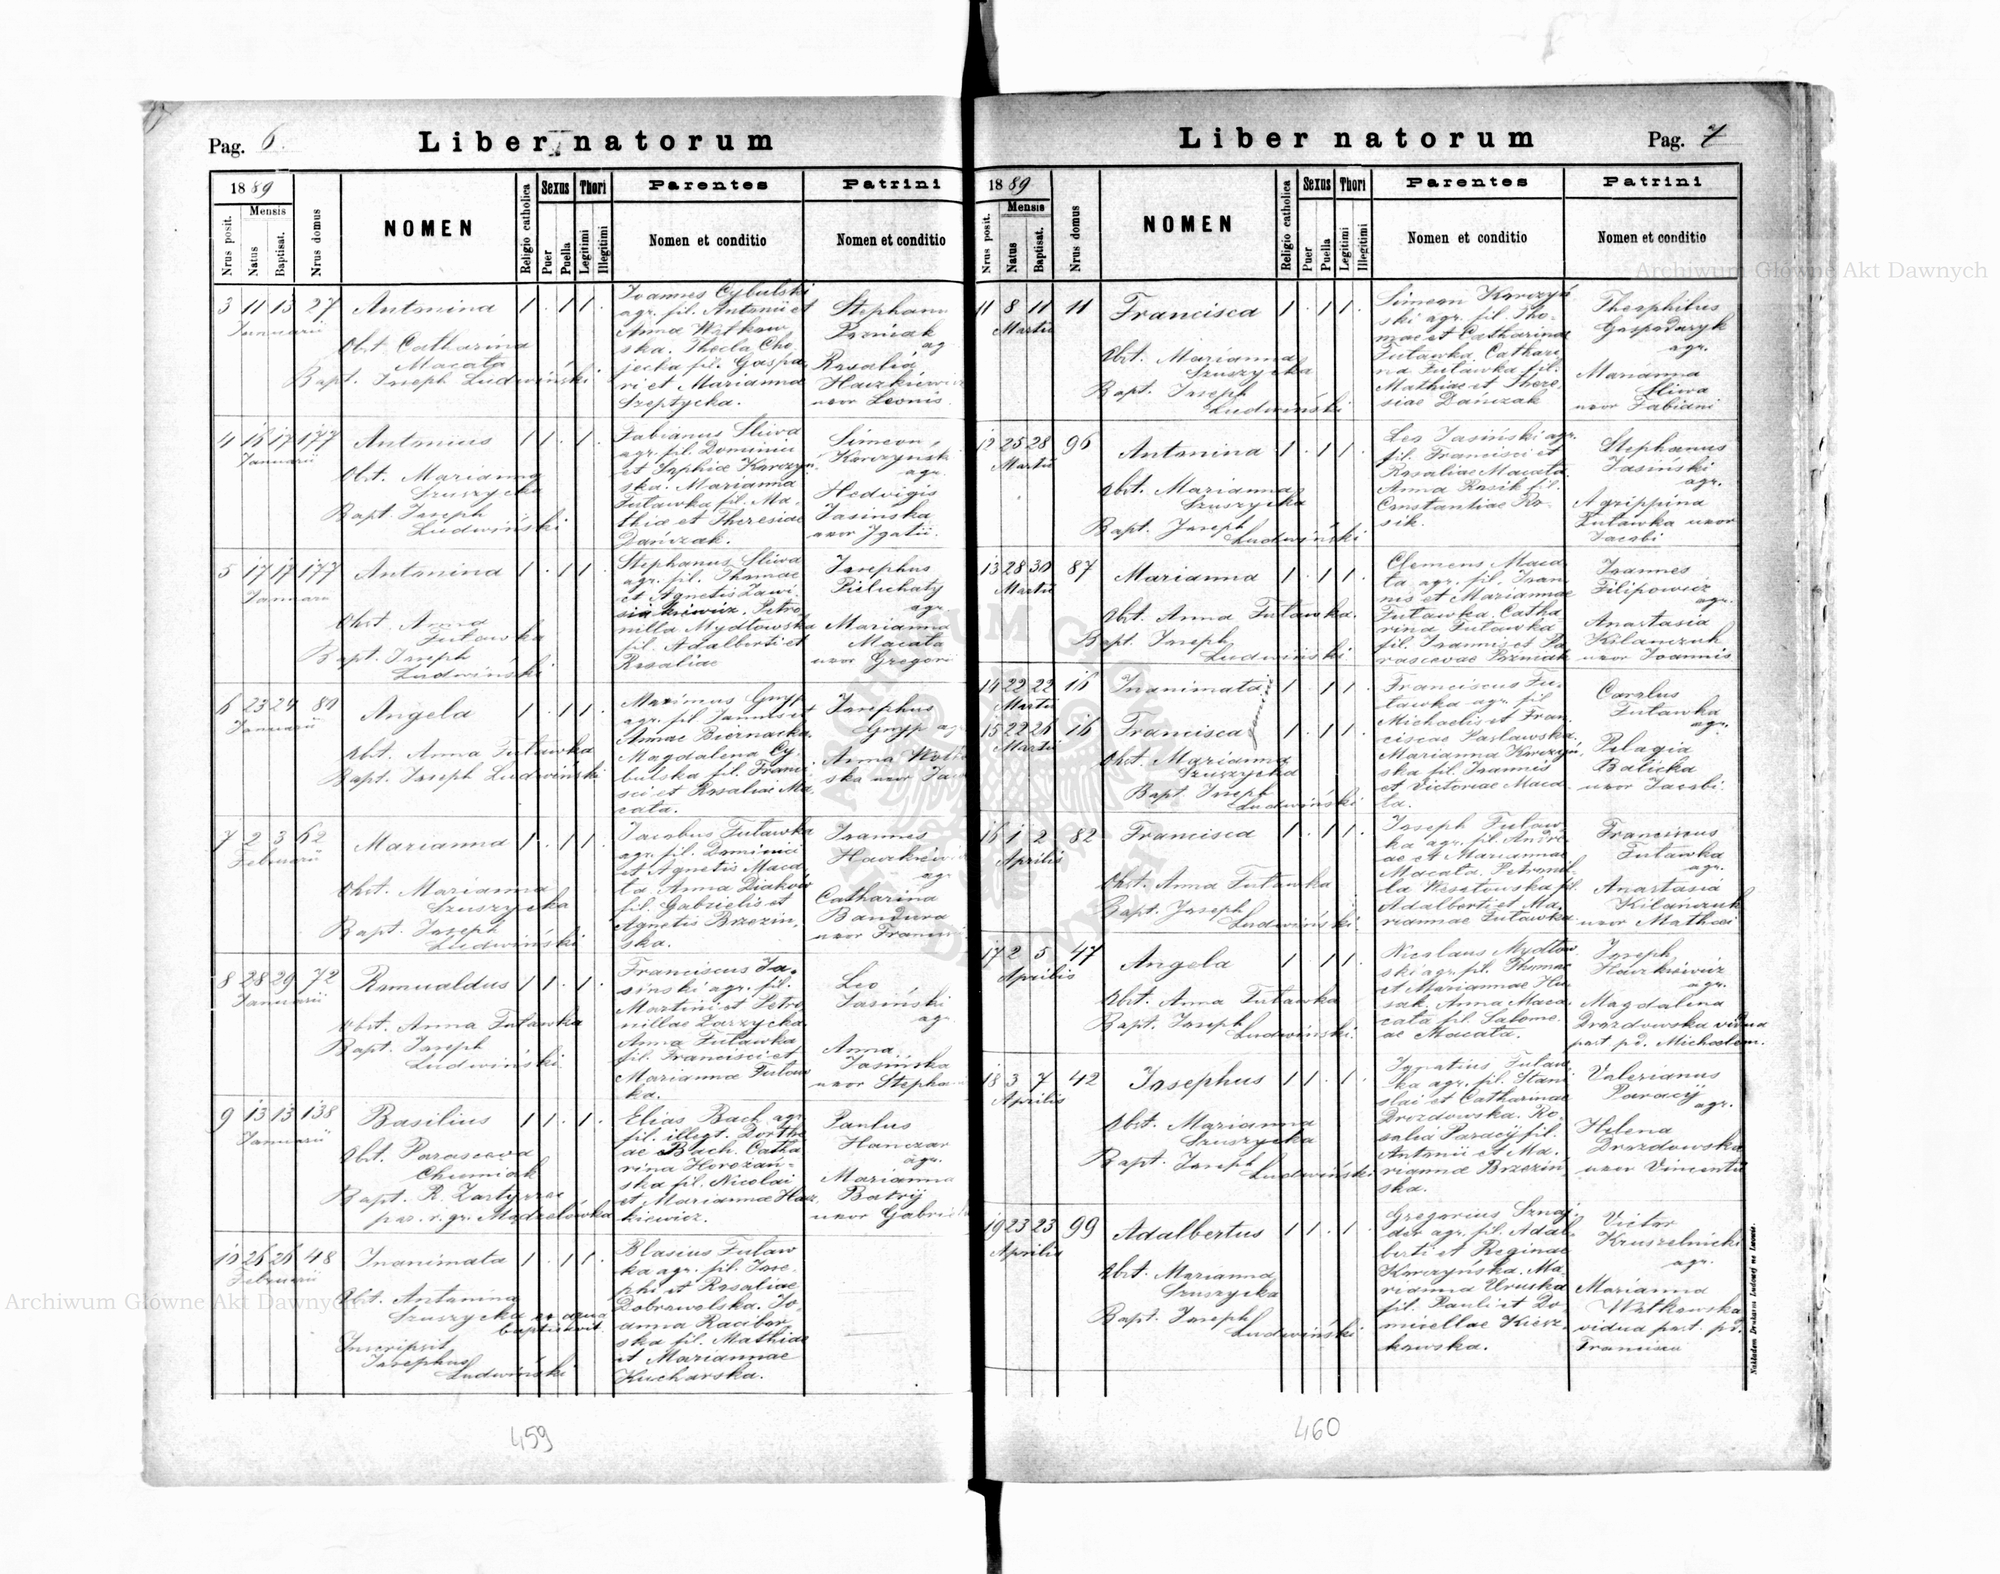 Pag. 6.
Liber natorum
1889
Mensis
Nrus posit.
Natus
Baptisat.
Nrus domus
NOMEN
Religio catholica
Sexus
Puer
Puella
Thori
Legitimi
Illegitimi
Parentes
Nomen et conditio
Patrini
Nomen et conditio
3 11 13 27
Januarii
Antonina
Obst. Catharina
Macała
Bapt. Joseph Ludwiński
1 . 1 1 .
Joannes Cybulski
agr. fil. Antonii et
Anna
ska. Thecla Cho-
jecka fil. Gaspa-
ri et Marianna
Szeptycka.
Stephan
Poźniak
ag
Rosalia
Haczkiewicz
uxor Leonis
4 16 17 177
Januarii
Antonius
Obst. Marianna
Szuszycka
Bapt. Joseph
Ludwiński
1 1 . 1 .
Fabianus Śliwa
agr. fil. Dominici
et Sophiae Korczyn-
ska. Marianna
Futawka fil. Ma-
thia et Theresiae
Dańczak.
Simeon
Korczyński
agr.
Hedvigis
Jasinska
uxor Igatii.
5 17 17 177
Januarii
Antonina
Obst. Anna
Futawka
Bapt. Joseph
Ludwiński
1 . 1 1 .
Stephanus Śliwa
agr. fil. Thomae
et Agnetis
Petro-
nilla Mydłowska
fil. Adalberti et
Rosaliae
Josephus
Pilichaty
agr.
Marianna
Macała
uxor Gregorii
6 23 24 89
Januarii
Angela
Obst. Anna Futawka
Bapt. Joseph Ludwiński
1 . 1 1 .
Maximus Gnyp
agr. fil. Joannis et
Annae Biernacka.
Magdalena Cy-
bulska fil. Franci-
sci et Rosaliae Ma-
cała.
Josephus
Gnyp agr
Anna
ska uxor
7 2 3 62
Februarii
Marianna
Obst. Marianna
Szuszycka
Bapt. Joseph
Ludwiński
1 . 1 1 .
Jacobus Futawka
agr. fil. Dominici
et Agnetis Maca-
ła. Anna Diaków
fil. Gabrielis et
Agnetis Brzezin-
ska.
Joannes
agr
Catharina
Bandura
uxor Francisci
8 28 29 72
Januarii
Romualdus
Obst. Anna Futawka
Bapt. Joseph
Ludwiński
1 1 . 1 .
Franciscus Ja-
sinski agr. fil.
Martini et Petro-
nillae Zarzycka
Anna Futawka
fil. Francisci et
Marianna Futaw-
ka.
Leo
Jasiński
agr
Anna
Jasińska
uxor Stepha
9 13 13 138
Januarii
Basilius
Obst. Parasceva
Chomiak
Bapt. R. Zartyrzec
par. r. gr. Mądzelówka
1 1 . 1 .
Elias Bach agr
fil. illegt. Dorthe-
ae Bach. Catha-
rina Horożań-
ska fil. Nicolai
et Marianna Hacz-
kiewicz.
Paulus
Hanczar
agr.
Marianna
Batrij
uxor Gabrie
10 26 26 48
Februarii
Inanimata
Obst. Antonina
Szuszycka ex aqua
baptisavit.
Inscripsit
Josephus
Ludwiński
1 . 1 1 .
Blasius Futaw
ka agr. fil. Jose-
phi et Rosaliae
Dobrowolska. Jo-
anna Racibor
ska fil. Mathiae
et Mariannae
Kucharska.
459
Liber natorum
Pag. 7
1889
Mensis
Nrus posit.
Natus
Baptisat.
Nrus domus
NOMEN
Religio catholica
Sexus
Puer
Puella
Thori
Legitimi
Illegitimi
Parentes
Nomen et conditio
Patrini
Nomen et conditio
11 8 11 11
Martii
Francisca
Obst. Marianna
Szuszycka
Bapt. Joseph
Ludwiński
1 . 1 1 .
Simeon Korczyń
ski agr. fil. Tho-
mae et Catharinae
Futawka. Cathari-
na Futawka fil.
Mathiae et There-
siae Dańczak
Theophilus
Gospodaryk
agr.
Marianna
Śliwa
uxor Fabiani
12 25 28 96
Martii
Antonina
Obst. Marianna
Szuszycka
Bapt. Joseph
Ludwiński
1 . 1 1 .
Leo Jasiński agr.
fil. Francisci et
Rosaliae Macała
Anna Rosik fil.
Constantiae Ro-
sik.
Stephanus
Jasiński
agr.
Agrippina
Futawka uxor
Jacobi
13 28 30 87
Martii
Marianna
Obst. Anna Futawka.
Bapt. Joseph
Ludwiński
1 . 1 1 .
Clemens Maca-
ła agr. fil. Joan-
nis et Mariannae
Futawka. Catha-
rina Futawka
fil. Joannis et Pa-
rascevae Poźniak
Joannes
Filipowicz
agr.
Anastasia
Kilanczuk
uxor Joannis
14 22 22 16
Martii
Inanimata
15 22 26 16
Martii
Francisca
gemini
Obst. Marianna
Szuszycka
Bapt. Joseph
Ludwiński
1 . 1 1 .
1 . 1 1 .
Franciscus Fu-
tawka agr. fil.
Michaelis et Fran-
ciscae Pasławska.
Marianna Korczyń-
ska fil. Joannis
et Victoriae Maca-
ła.
Carolus
Futawka
agr.
Pelagia
Balicka
uxor Jacobi.
16 1 2 82
Aprilis
Francisca
Obst. Anna Futawka
Bapt. Joseph
Ludwiński
1 . 1 1 .
Joseph Futaw-
ka agr. fil. Andre-
ae et Mariannae
Macała. Petronil-
la Wesołowska fil.
Adalberti et Ma-
riannae Futawka
Franciscus
Futawka
agr.
Anastasia
Kilańczuk
uxor Mathaei
17 2 5 47
Aprilis
Angela
Obst. Anna Futawka
Bapt. Joseph
Ludwiński
1 . 1 1 .
Nicolaus Mydłow
ski agr. fil. Thomae
et Mariannae Hu-
sak. Anna Maca-
cała fil. Salome-
ae Macała.
Joseph
Haczkiewicz
agr.
Magdalena
Drozdowska vidua
post pd. Michaelem.
18 3 7 42
Aprilis
Josephus
Obst. Marianna
Szuszycka
Bapt. Joseph
Ludwiński
1 1 . 1 .
Ignatius Futaw-
ka agr. fil. Stani-
slai et Catharinae
Drozdowska. Ro-
salia Paracij fil.
Antonii et Ma-
rianna Brzeziń-
ska.
Valerianus
Paracij
agr.
Helena
Drozdowska
uxor Vincentii
19 23 23 99
Aprilis
Adalbertus
Obst. Marianna
Szuszycka
Bapt. Joseph
Ludwiński
1 1 . 1 .
Gregorius Sznaj-
der agr. fil. Adal-
berti et Reginae
Korczyńska. Ma-
rianna Uruska
fil. Pauli et Do-
micellae Kiesz-
kowska.
Victor
Kruszelnicki
agr.
Marianna
Witkowska
vidua post. pd.
Francisco
Nakładem Drukarni Ludowej we Lwowie.
460
Archiwum Główne Akt Dawnych
Archiwum Główne Akt Dawnych
ARCHIWUM GŁÓWNE AKT DAWNYCH